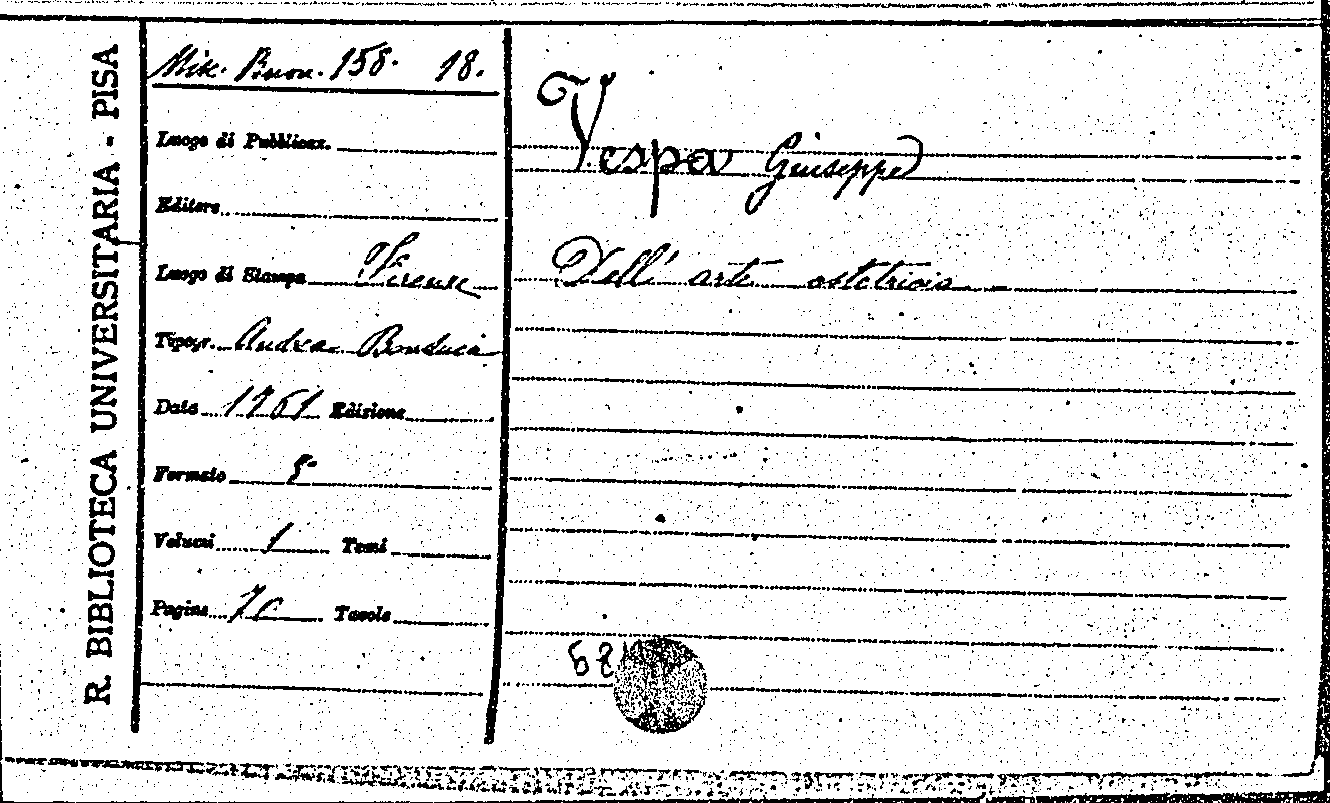 R. BIBLIOTECA UNIVERSITARIA - PISA
Misc. Buon. 158. 18.
Luogo di Pubblicaz.
Editore
Luogo di Stampa Firenze
Tipogr. Andrea Bonducci
Data 1761 Edizione
Formato 8°
Volumi 1 Tomi
Pagine Tavole
Vespa Giuseppe
Dell' arte ostetricia